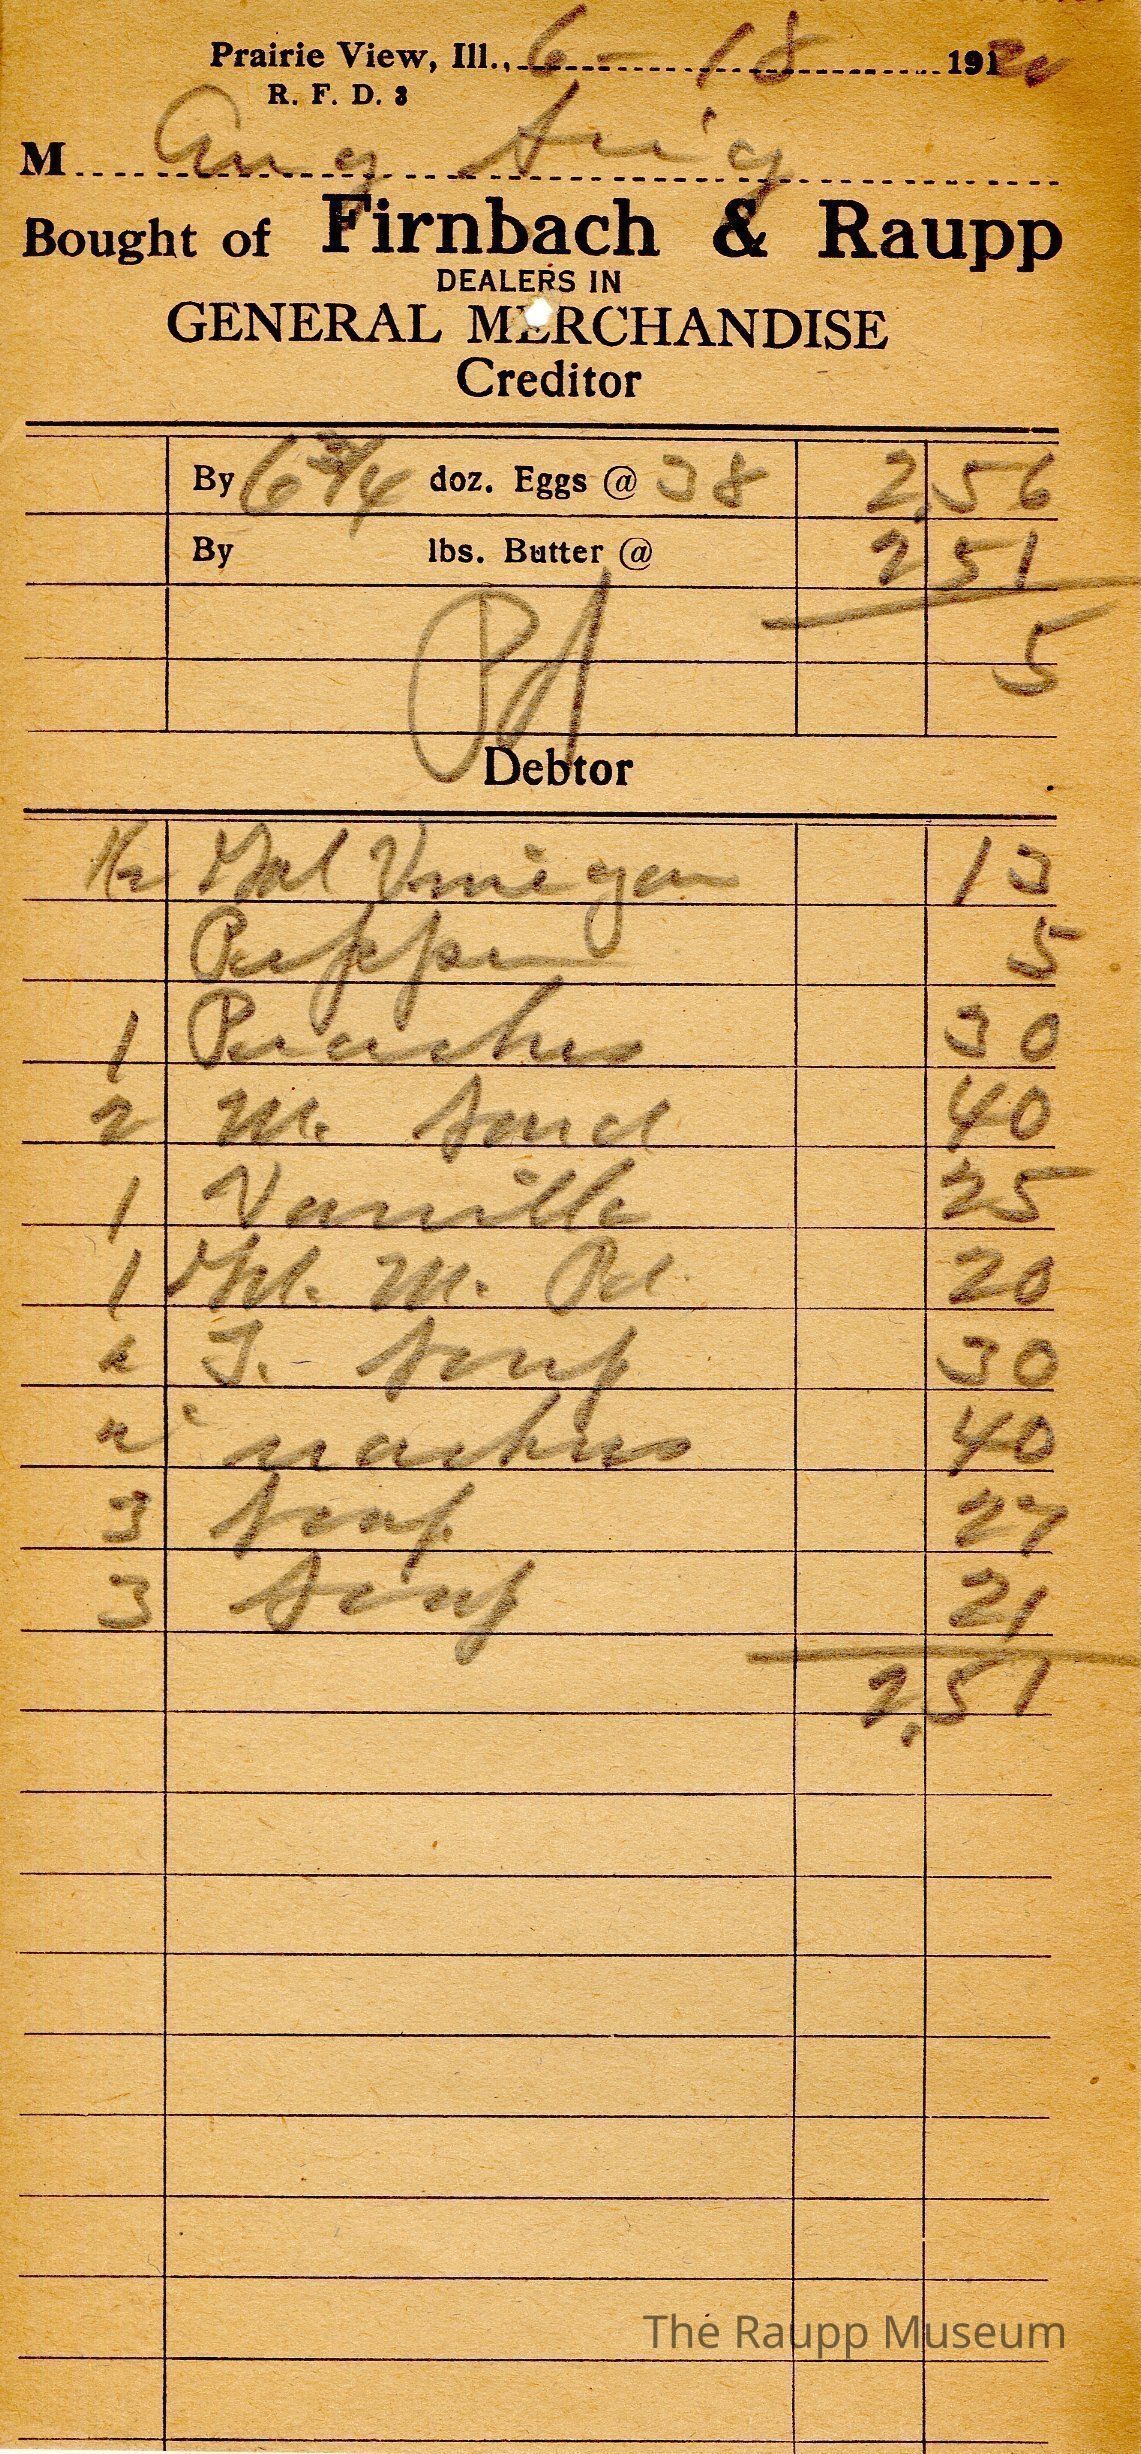 Prairie View, Ill., 6-18 1920
R. F. D. 3
M Aug Sui g
Bought of Firnbach & Raupp
DEALERS IN
GENERAL MERCHANDISE
Creditor
By 6 3/4 doz. Eggs @ 38 2.56
By lbs. Butter @ 2 51
5
Pd
Debtor
1/2 Gal Vinegar 13
Pepper 5
1 Peaches 30
2 M. 40
1 Vanilla 25
1 M. Pd. 20
2 T. Soup 30
2 40
3 Soap 27
3 Soap 21
2.51
The Raupp Museum